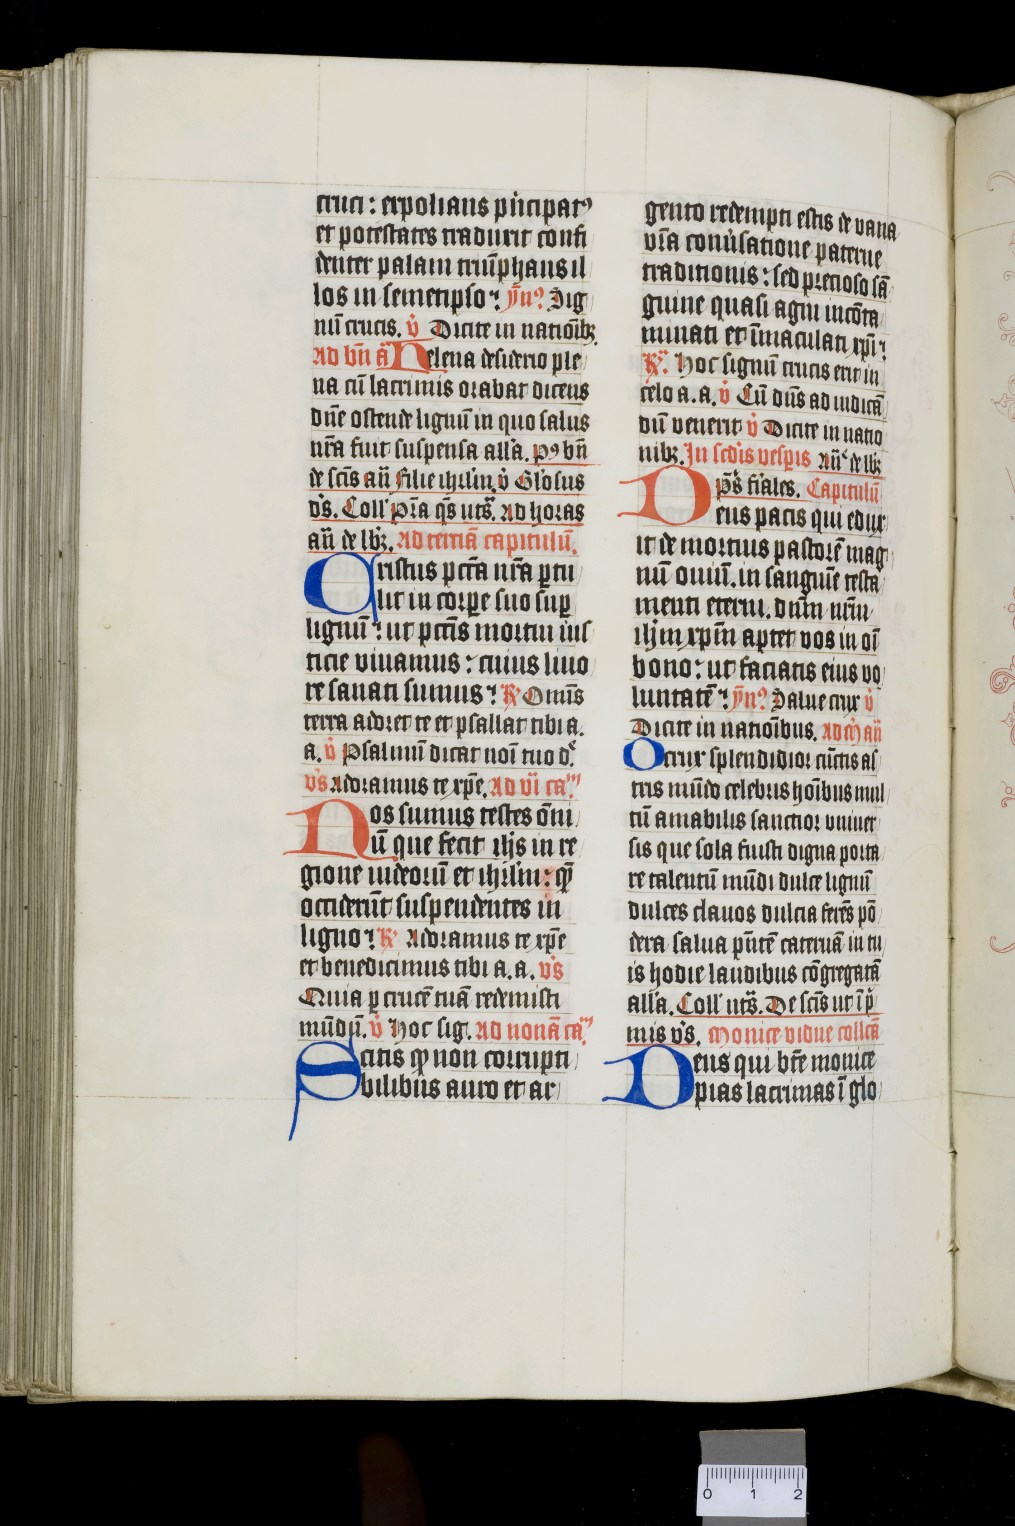 cruci : expolians pͥncipatꝰ
et potestates traduxit confi
denter palam triūphans il
los in semetipso ⁊ ym̄? Sig
nū crucis. v̇ Dicite in natioībꝫ
Ad bn̄ ā Helena desiderio ple
na cū lacrimis orabat dicens
dn̄e ostende lignū in quo salus
nr̄a fuit suspensa all'a. pꝰ bn̄
de scīs an̄ Filie ihrlm̄. v̇ Gl'osus
d's. Coll' Pr̄a q̄s ut s̄. Ad horas
an̄ de lbꝫ. Ad terciā capitulū.
Cristus pctā nr̄a ꝑtu
lit in corꝑe suo suꝑ
lignū : ut pctīs mortui ius
ticie viuamus : cuius liuo
re sanati sumus ⁊ ꝶ Omīs
terra adoret te et psallat tibi a.
a. v̇ Psalmū dicat noī tuo dē.
v's Adoramus te xp̄e. Ad vi ca''
Nos sumus testes om̄i
ū que fecit ihs in re
gione iudeorū et ihrlm̄ : qꝫ
occiderūt suspendentes in
ligno ⁊ ꝶ Adoramus te xp̄e
et benedicimus tibi a. a. v's
Quia ꝑ crucē tuā redemisti
mūdū. v̇ Hoc sig. Ad nonā ca''
Scitis ꝙ non corrupti
bilibus auro et ar
gento redempti estis de vana
vr̄a conũsatione paterne
traditionis : sed precioso sā
guine quasi agni incōta
minati et īmaculati xp̄i ⁊
ꝶ. Hoc signū crucis erit in
celo a. a. v̇ Cū dn̄s ad iudicā
dū venerit v̇ Dicite in natio
nibꝫ. In scd'is vesperis An̄ de lbꝫ
p̄s fīales. Capitulū
Deus pacis qui edux
it de mortuis pastorē mag
nū ouiū. in sanguīe testa
menti eterni. dn̄m nr̄m
ihm xpm̄ aptet vos in oī
bono : ut faciatis eius vo
luntatē ⁊ ym̄? Salue crux v̇
Dicite in natioībus. Ad m̄ an̄
O crux splendidior cūctis as
tris mūdo celebris hoībus mul
tū amabilis sanctior vniuer
sis que sola fuisti digna porta
re talentū mūdi dulce lignū
dulces clauos dulcia ferēs pō
dera salua pn̄tē cateruā in tu
is hodie laudibus cōgregatā
all'a. Coll' ut s̄. De scīs ut ī pͥ
mis v's. Monice vidue collcā
Deus qui btē monice
pias lacrimas ī glo